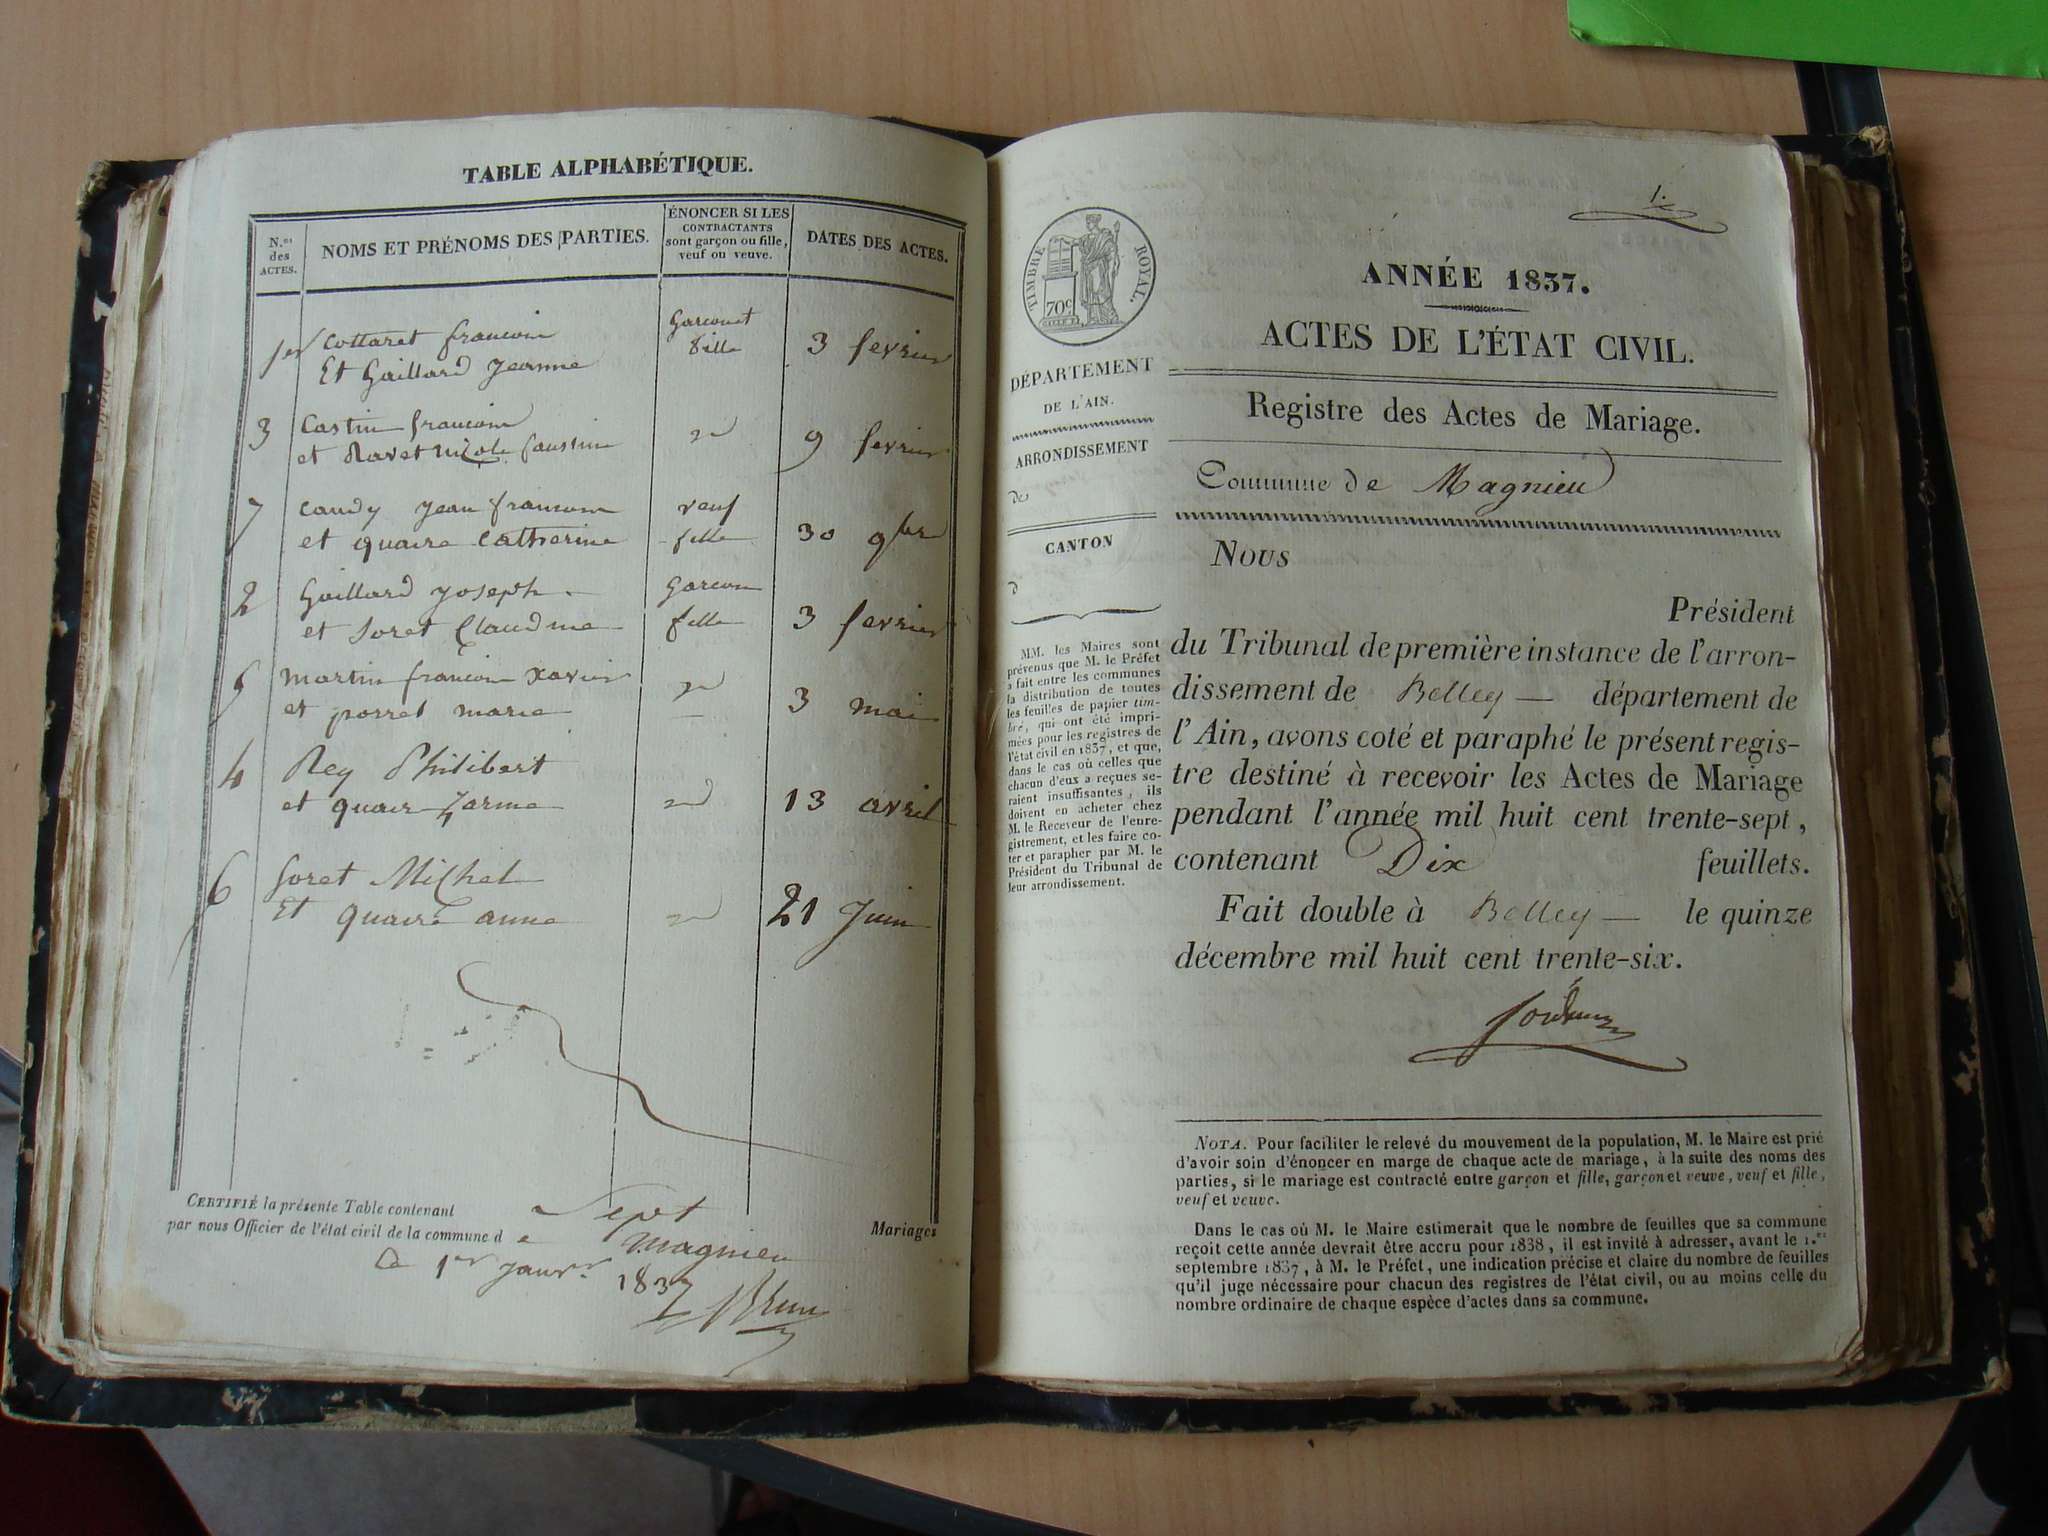 TABLE ALPHABÉTIQUE.
N.os des ACTES.
NOMS ET PRÉNOMS DES PARTIES.
ÉNONCER SI LES
CONTRACTANTS
sont garçon ou fille,
veuf ou veuve.
DATES DES ACTES.
1er Cottaret francois Garconet 3 fevrier
Et Gaillard Jeanne fille
3 Castin francois 9 fevrier
et Ravet Nicole faustine
7 Caudy Jean francois veuf 30 9bre
et quaire Catherine fille
2 Gaillard Joseph Garcon 3 fevrier
et Soret Claudine fille
5 Martin francois Xavier 3 mai
et porret marie
4 Rey Philibert 13 avril
et quair
6 Soret Michel 21 Juin
Et quaire anne
CERTIFIÉ la présente Table contenant Sept Mariages
par nous Officier de l'état civil de la commune de magnieu
Ce 1er Janvr. 1837
Brun
1.
TIMBRE ROYAL.
70c
ANNÉE 1837.
ACTES DE L'ÉTAT CIVIL.
DÉPARTEMENT
DE L'AIN.
ARRONDISSEMENT
de
CANTON
d
MM. les Maires sont
prévenus que M. le Préfet
a fait entre les communes
la distribution de toutes
les feuilles de papier tim-
bré, qui ont été impri-
mées pour les registres de
l'état civil en 1837, et que,
dans le cas où celles que
chacun d'eux a reçues se-
raient insuffisantes, ils
doivent en acheter chez
M. le Receveur de l'enre-
gistrement, et les faire co-
ter et parapher par M. le
Président du Tribunal de
leur arrondissement.
Registre des Actes de Mariage.
Commune de Magnieu
Nous
Président
du Tribunal de première instance de l'arron-
dissement de Belley département de
l'Ain, avons coté et paraphé le présent regis-
tre destiné à recevoir les Actes de Mariage
pendant l'année mil huit cent trente-sept,
contenant Dix feuillets.
Fait double à Belley le quinze
décembre mil huit cent trente-six.
NOTA. Pour faciliter le relevé du mouvement de la population, M. le Maire est prié
d'avoir soin d'énoncer en marge de chaque acte de mariage, à la suite des noms des
parties, si le mariage est contracté entre garçon et fille, garçon et veuve, veuf et fille,
veuf et veuve.
Dans le cas où M. le Maire estimerait que le nombre de feuilles que sa commune
reçoit cette année devrait être accru pour 1838, il est invité à adresser, avant le 1.er
septembre 1837, à M. le Préfet, une indication précise et claire du nombre de feuilles
qu'il juge nécessaire pour chacun des registres de l'état civil, ou au moins celle du
nombre ordinaire de chaque espèce d'actes dans sa commune.